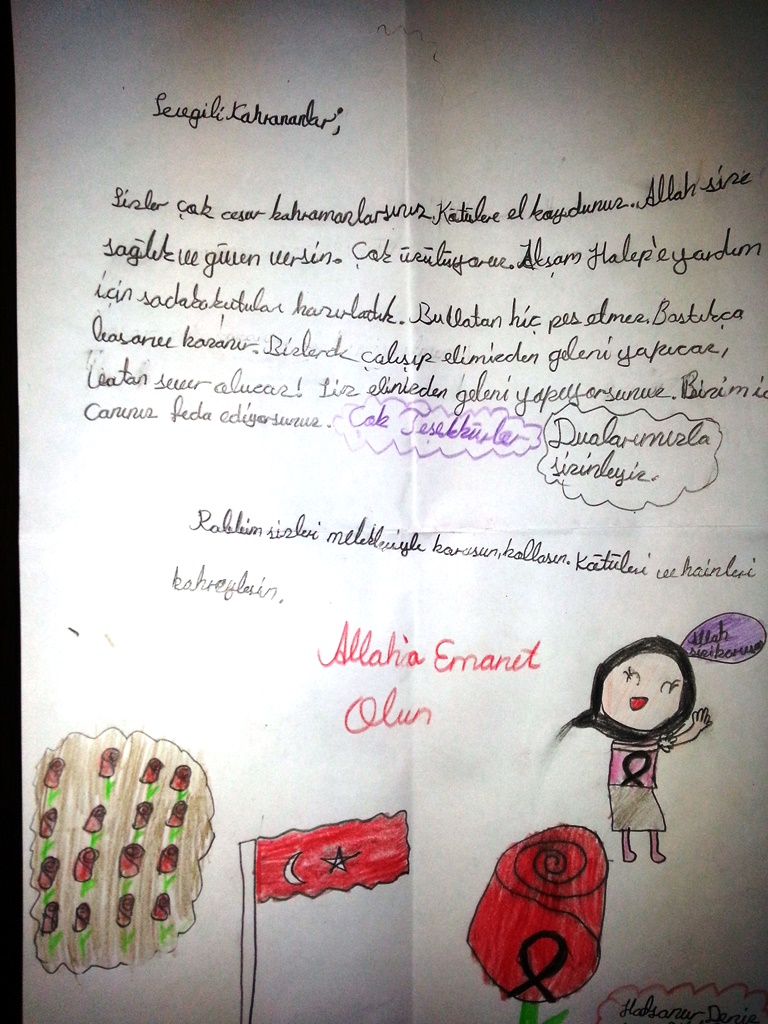 Sevgili Kahramanlar;
Sizler çok cesur kahramanlarsınız. Kötülere el koydunuz. Allah size
sağlık ve güven versin. Çok üzülüyoruz. Akşam Halep'e yardım
için sadaka kutuları hazırladık. Bu Vatan hiç pes etmez, Bastıkça
basar kazanır. Bizlerde çalışıp elimizden geleni yapıcaz,
Vatan sever olucaz! Siz elinizden geleni yapıyorsunuz. Bizim iç
Canınız feda ediyorsunuz. Çok Teşekkürler
Dualarımızla
sizinleyiz.
Rabbim sizleri melekleriyle korusun, kollasın. Kötüleri ve hainleri
kahreylesin.
Allah'a Emanet
Olun
Allah
sizi korusun